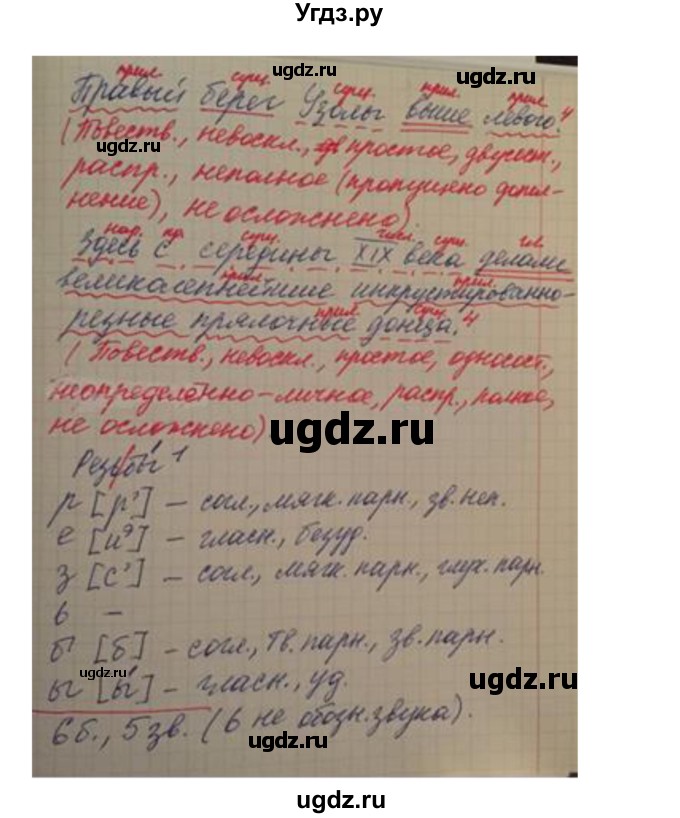 Угдз.ру
прил. сущ. сущ. прил. прил.
Правый берег Узолы выше левого.4
(Повеств., невоскл., простое, двусост.,
распр., неполное (пропущено допол-
нение), не осложнено).
нар. пр. сущ. числ. сущ. гл.
Здесь с середины XIX века делали
прил. прил.
великолепнейшие инкрустированно-
прил. сущ.
резные прялочные донца.4
(Повеств., невоскл., простое, односост.,
неопределённо-личное, распр., полное,
не осложнено)
Резьбы́ 1
р [р'] – согл., мягк. парн., зв. неп.
е [иэ] – гласн., безуд.
з [с'] – согл., мягк. парн., глух. парн.
ь –
б [б] – согл., тв. парн., зв. парн.
ы [ы́] – гласн., уд.
6 б., 5 зв. (ь не обозн. звука).
ugdz.ru
ugdz.ru
ugdz.ru
ugdz.ru
ugdz.ru
ugdz.ru
ugdz.ru
ugdz.ru
ugdz.ru